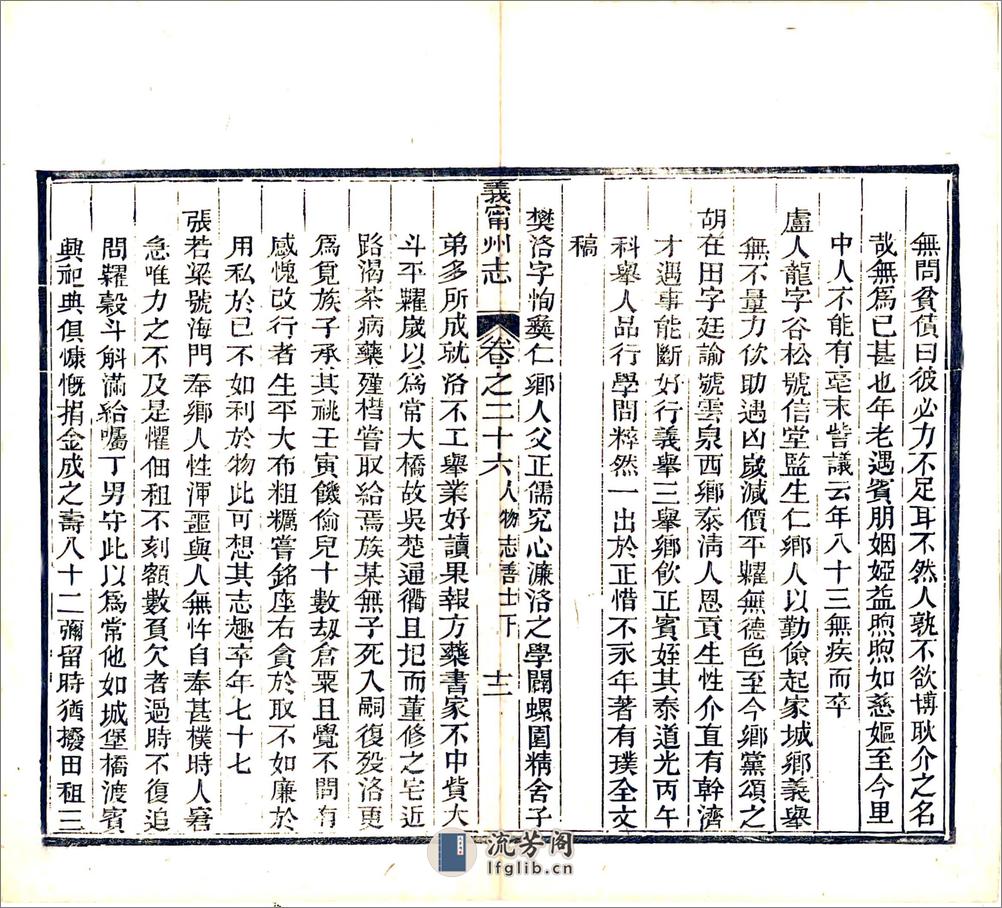 無問貧債曰彼必力不足耳不然人孰不欲博耿介之名
哉無爲已甚也年老遇賓朋姻婭益煦煦如慈嫗至今里
中人不能有毫末訾議云年八十三無疾而卒
盧人龍字谷松號信堂監生仁鄉人以勤儉起家城鄉義舉
無不量力佽助遇凶歲減價平糶無德色至今鄉黨頌之
胡在田字廷諭號雲泉西鄉泰淸人恩貢生性介直有幹濟
才遇事能斷好行義舉三舉鄉飲正賓姪其泰道光丙午
科舉人品行學問粹然一出於正惜不永年著有璞全文
稿
樊洛字恂彝仁鄉人父正儒究心濂洛之學闢螺園精舍子
義甯州志 卷之二十六 人物志善士下 十二
弟多所成就洛不工舉業好讀果報方藥書家不中貲大
斗平糶歲以爲常大橋故吳楚通衢且圯而董修之宅近
路渴茶病藥殣槥嘗取給焉族某無子死入嗣復歿洛更
爲覓族子承其祧壬寅饑偷兒十數刼倉粟且覺不問有
感愧改行者生平大布粗糲嘗銘座右貪於取不如廉於
用私於已不如利於物此可想其志趣卒年七十七
張若梁號海門奉鄉人性渾噩與人無忤自奉甚樸時人窘
急唯力之不及是懼佃租不刻額數負欠者過時不復追
問糶穀斗斛滿給囑丁男守此以爲常他如城堡橋渡賓
興祀典俱慷慨捐金成之壽八十二彌留時猶撥田租三
流芳阁
lfglib.cn